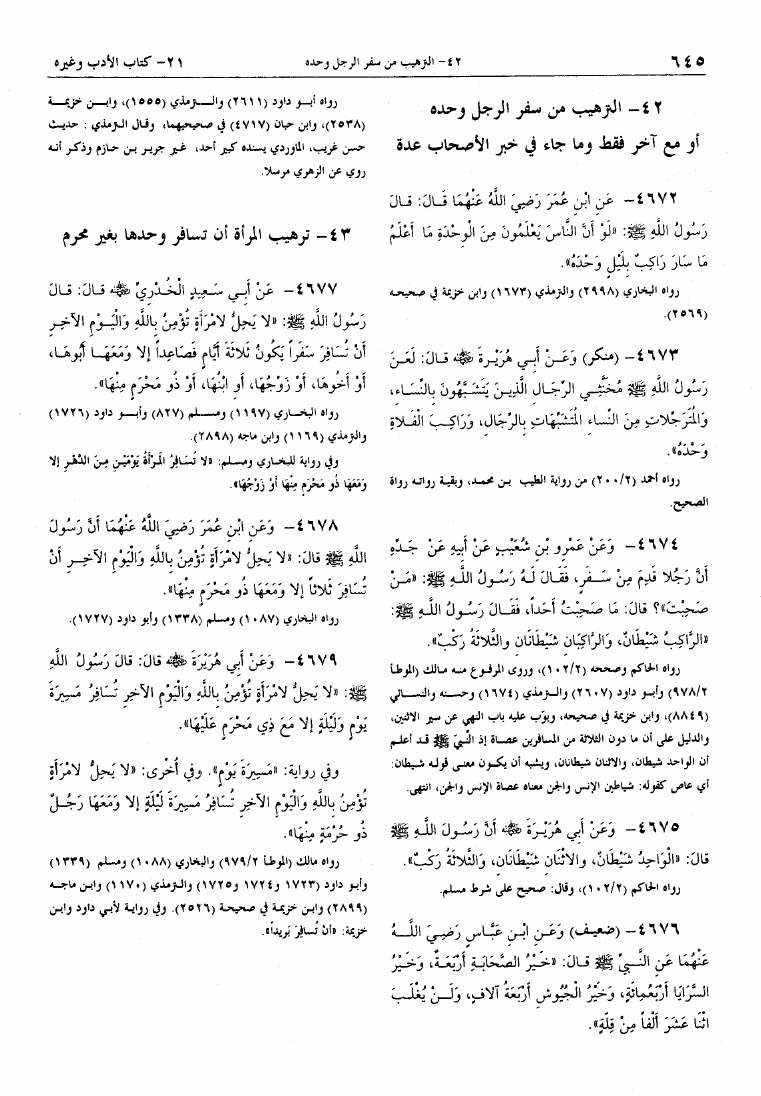 ٦٤٥
٤٢- الترهيب من سفر الرجل وحده
٢١- كتاب الأدب وغيره
٤٢- الترهيب من سفر الرجل وحده
أو مع آخر فقط وما جاء في خبر الأصحاب عدة
٤٦٧٢- عَنِ ابْنِ عُمَرَ رَضِيَ اللَّهُ عَنْهُمَا قَالَ: قالَ
رَسُولُ اللَّهِ ﷺ: «لَوْ أَنَّ النَّاسَ يَعْلَمُونَ مِنَ الْوِحْدَةِ مَا أَعْلَمُ
مَا سَارَ رَاكِبٌ بِلَيْلٍ وَحْدَهُ».
رواه البخاري (٢٩٩٨) والترمذي (١٦٧٣) وابن خزيمة في صحيحه
(٢٥٦٩).
٤٦٧٣- (منكر) وَعَنْ أَبِي هُرَيْرةَ ﷺ قالَ: لَعَنَ
رَسُولُ اللَّهِ ﷺ مُخَنَّثِي الرِّجَالِ الَّذِينَ يَتَشَبَّهُونَ بِالنِّسَاءِ،
وَالمُتَرَجِّلاتِ مِنَ النِّسَاءِ المُتَشَبِّهَاتِ بِالرِّجَالِ، وَرَاكِبَ الْفَلاةِ
وَحْدَهُ».
رواه أحمد (٢٠٠/٢) من رواية الطيب بن محمد، وبقية رواته رواة
الصحيح.
٤٦٧٤- وَعَنْ عَمْرِو بْنِ شُعَيْبٍ عَنْ أَبِيهِ عَنْ جَدِّهِ
أَنَّ رَجُلاً قَدِمَ مِنْ سَفَرٍ، فَقَالَ لَهُ رَسُولُ اللَّهِ ﷺ: «مَنْ
صَحِبْتَ»؟ قالَ: مَا صَحِبْتُ أَحَداً، فَقَالَ رَسُولُ اللَّهِ ﷺ:
«الرَّاكِبُ شَيْطَانٌ، وَالرَّاكِبَانِ شَيْطَانَانِ وَالثَّلاثَةُ رَكْبٌ».
رواه الحاكم وصححه (١٠٢/٢)، وروى المرفوع منه مالك (الموطأ
٩٧٨/٢) وأبو داود (٢٦٠٧) والترمذي (١٦٧٤) وحسنه والنسائي
(٨٨٤٩)، وابن خزيمة في صحيحه، وبوّب عليه باب النهي عن سير الاثنين،
والدليل على أن ما دون الثلاثة من المسافرين عصاة إذ النَّبيّ ﷺ قد أعلم
أن الواحد شيطان، والاثنان شيطانان، ويشبه أن يكون معنى قوله شيطان:
أي عاص كقوله: شياطين الإنس والجن معناه عصاة الإنس والجن، انتهى.
٤٦٧٥- وَعَنْ أَبِي هُرَيْرةَ ﷺ أَنَّ رَسُولَ اللَّهِ ﷺ
قالَ: «الْوَاحِدُ شَيْطَانٌ، وَالاثْنَانِ شَيْطَانَانِ، وَالثَّلاثَةُ رَكْبٌ».
رواه الحاكم (١٠٢/٢)، وقال: صحيح على شرط مسلم.
٤٦٧٦- (ضعيف) وَعَنِ ابْنِ عَبَّاسٍ رَضِيَ اللَّهُ
عَنْهُمَا عَنِ النَّبِيِّ ﷺ قَالَ: «خَيْرُ الصَّحَابَةِ أَرْبَعَةٌ، وَخَيْرُ
السَّرَايَا أَرْبَعُمِائَةٍ، وَخَيْرُ الْجُيُوشِ أَرْبَعَةُ آلافٍ، وَلَنْ يُغْلَبَ
اثْنَا عَشَرَ أَلْفاً مِنْ قِلَّةٍ».
رواه أبو داود (٢٦١١) والترمذي (١٥٥٥)، وابن خزيمة
(٢٥٣٨)، وابن حبان (٤٧١٧) في صحيحيهما، وقال الترمذي: حديث
حسن غريب، الماوردي يسنده كبير أحد، غير جرير بن حازم وذكر أنه
روي عن الزهري مرسلا.
٤٣- ترهيب المرأة أن تسافر وحدها بغير محرم
٤٦٧٧- عَنْ أَبِي سَعِيدٍ الْخُدْرِيِّ ﷺ قالَ: قالَ
رَسُولُ اللَّهِ ﷺ: «لا يَحِلُّ لامْرَأَةٍ تُؤْمِنُ بِاللَّهِ وَالْيَوْمِ الآخِرِ
أَنْ تُسَافِرَ سَفَراً يَكُونُ ثَلاثَةَ أَيَّامٍ فَصَاعِداً إِلا وَمَعَهَا أَبُوهَا،
أَوْ أَخُوهَا، أَوْ زَوْجُهَا، أَوِ ابْنُهَا، أَوْ ذُو مَحْرَمٍ مِنْهَا».
رواه البخاري (١١٩٧) ومسلم (٨٢٧) وأبو داود (١٧٢٦)
والترمذي (١١٦٩) وابن ماجه (٢٨٩٨).
وفي رواية للبخاري ومسلم: «لا تُسَافِرُ المَرْأَةُ يَوْمَيْنِ مِنَ الدَّهْرِ إلا
وَمَعَهَا ذُو مَحْرَمٍ مِنْهَا أَوْ زَوْجُهَا».
٤٦٧٨- وَعَنِ ابْنِ عُمَرَ رَضِيَ اللَّهُ عَنْهُمَا أَنَّ رَسُولَ
اللَّهِ ﷺ قالَ: «لا يَحِلُّ لامْرَأَةٍ تُؤْمِنُ بِاللَّهِ وَالْيَوْمِ الآخِرِ أَنْ
تُسَافِرَ ثَلاثاً إِلا وَمَعَهَا ذُو مَحْرَمٍ مِنْهَا».
رواه البخاري (١٠٨٧) ومسلم (١٣٣٨) وأبو داود (١٧٢٧).
٤٦٧٩- وَعَنْ أَبِي هُرَيْرَةَ ﷺ قالَ: قالَ رَسُولُ اللَّهِ
ﷺ: «لا يَحِلُّ لامْرَأَةٍ تُؤْمِنُ بِاللَّهِ وَالْيَوْمِ الآخِرِ تُسَافِرُ مَسِيرَةَ
يَوْمٍ وَلَيْلَةٍ إِلا مَعَ ذِي مَحْرَمٍ عَلَيْهَا».
وفي رواية: «مَسِيرَةَ يَوْمٍ». وفي أُخرى: «لا يَحِلُّ لامْرَأَةٍ
تُؤْمِنُ بِاللَّهِ وَالْيَوْمِ الآخِرِ تُسَافِرُ مَسِيرَةَ لَيْلَةٍ إِلا وَمَعَهَا رَجُلٌ
ذُو حُرْمَةٍ مِنْهَا».
رواه مالك (الموطأ ٩٧٩/٢) والبخاري (١٠٨٨) ومسلم (١٣٣٩)
وأبو داود (١٧٢٣ و١٧٢٤ و١٧٢٥) والترمذي (١١٧٠) وابن ماجه
(٢٨٩٩) وابن خزيمة في صحيحة (٢٥٢٦). وفي رواية لأبي داود وابن
خزيمة: «أنْ تُسافِرَ بَريداً».